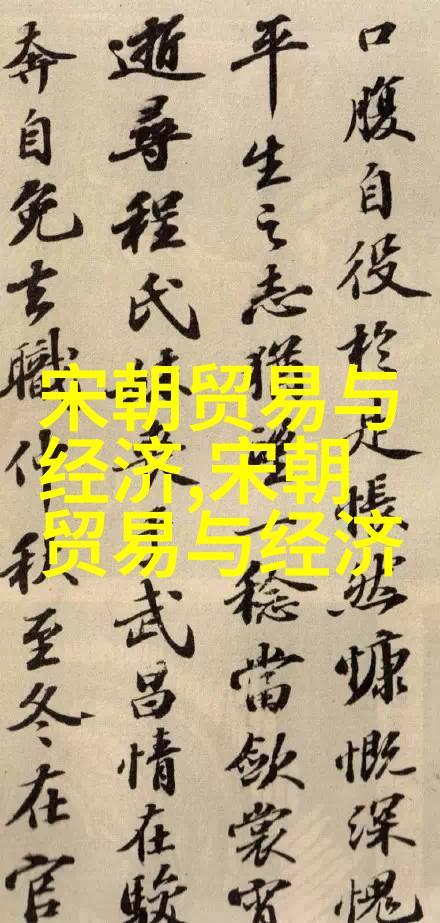 口腹自役於是悵然慷慨深愧
平生之志猶望一稔當斂裳宵
逝尋程氏妹喪于武昌情在駿
奔自免去職仲秋至冬在官
宋朝贸易与
经济,宋朝
贸易与经济